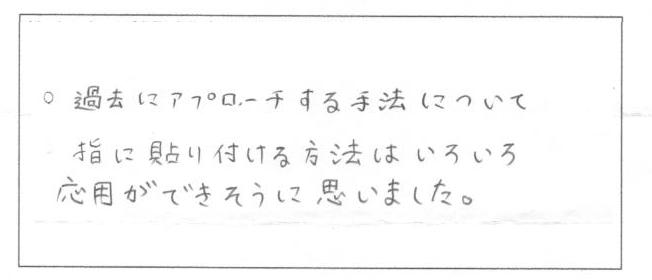 ○ 過去にアプローチする手法について
指に貼り付ける方法はいろいろ
応用ができそうに思いました。